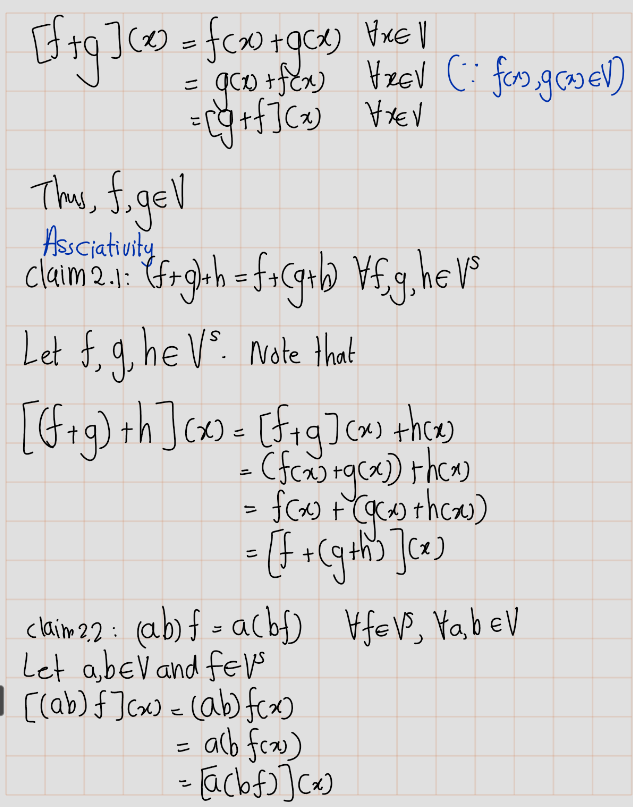 [f+g](x) = f(x)+g(x) ∀x∈V
= g(x)+f(x) ∀x∈V (∵ f(x),g(x)∈V)
=[g+f](x) ∀x∈V
Thus, f,g∈V
Assciativity
claim2.1: (f+g)+h = f+(g+h) ∀f,g,h∈V^s
Let f, g, h∈ V^s. Note that
[(f+g)+h](x) = [f+g](x) +h(x)
= (f(x)+g(x))+h(x)
= f(x) + (g(x)+h(x))
= [f+(g+h)](x)
claim2.2: (ab)f = a(bf) ∀f∈V^s, ∀a,b∈V
Let a,b∈V and f∈V^s
[(ab)f](x) = (ab)f(x)
= a(b f(x))
= [a(bf)](x)